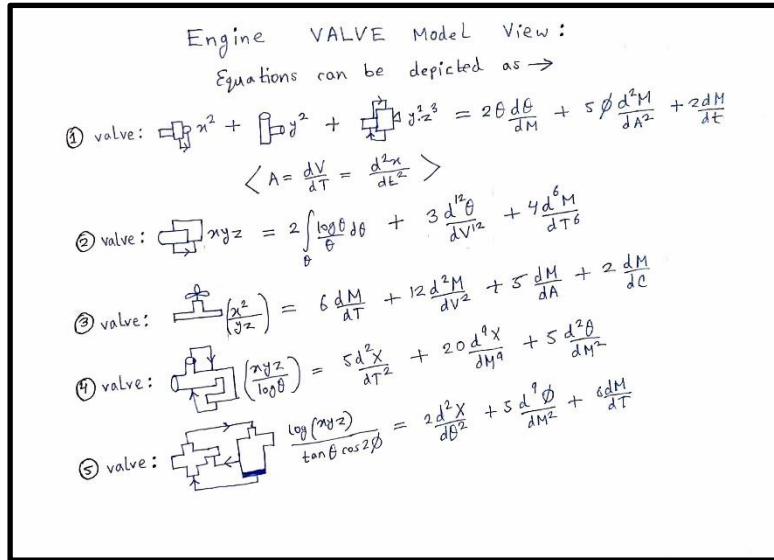 Engine VALVE Model View:
Equations can be depicted as →
① valve: x² + y² + y²z³ = 2θ dθ/dM + 5∅ d²M/dA² + 2dM/dt
< A = dV/dT = d²x/dt² >
② valve: xyz = 2 ∫θ logθ/θ dθ + 3 d¹²θ/dV¹² + 4 d⁶M/dT⁶
③ valve: (x²/yz) = 6 dM/dT + 12 d²M/dV² + 5 dM/dA + 2 dM/dC
④ valve: (xyz/logθ) = 5d²X/dT² + 20 d⁹X/dM⁹ + 5 d²θ/dM²
⑤ valve: log(xyz)/tanθ cos2∅ = 2d²X/dθ² + 5 d⁹∅/dM² + 6dM/dT